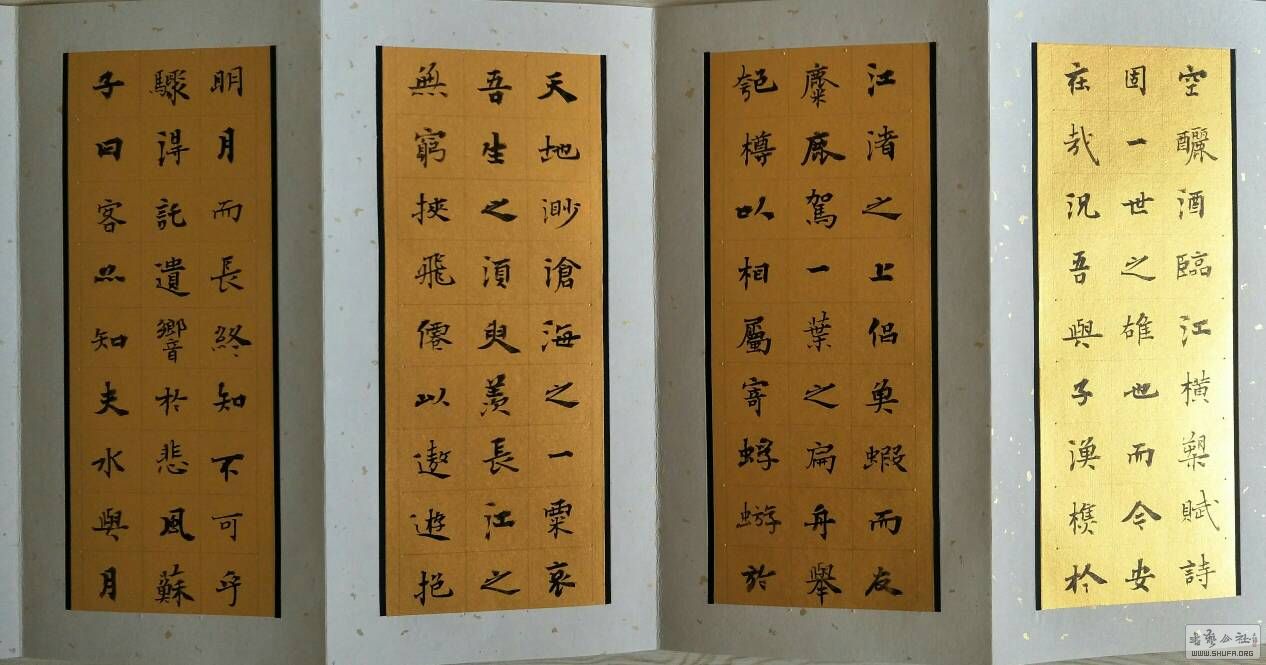 空釃酒臨江橫槊賦詩
固一世之雄也而今安
在哉況吾與子漁樵於
江渚之上侶魚蝦而友
麋鹿駕一葉之扁舟舉
匏樽以相屬寄蜉蝣於
天地渺滄海之一粟哀
吾生之須臾羨長江之
無窮挾飛僊以遨遊抱
明月而長終知不可乎
驟得託遺響於悲風蘇
子曰客亦知夫水與月
书艺公社
WWW.SHUFA.ORG